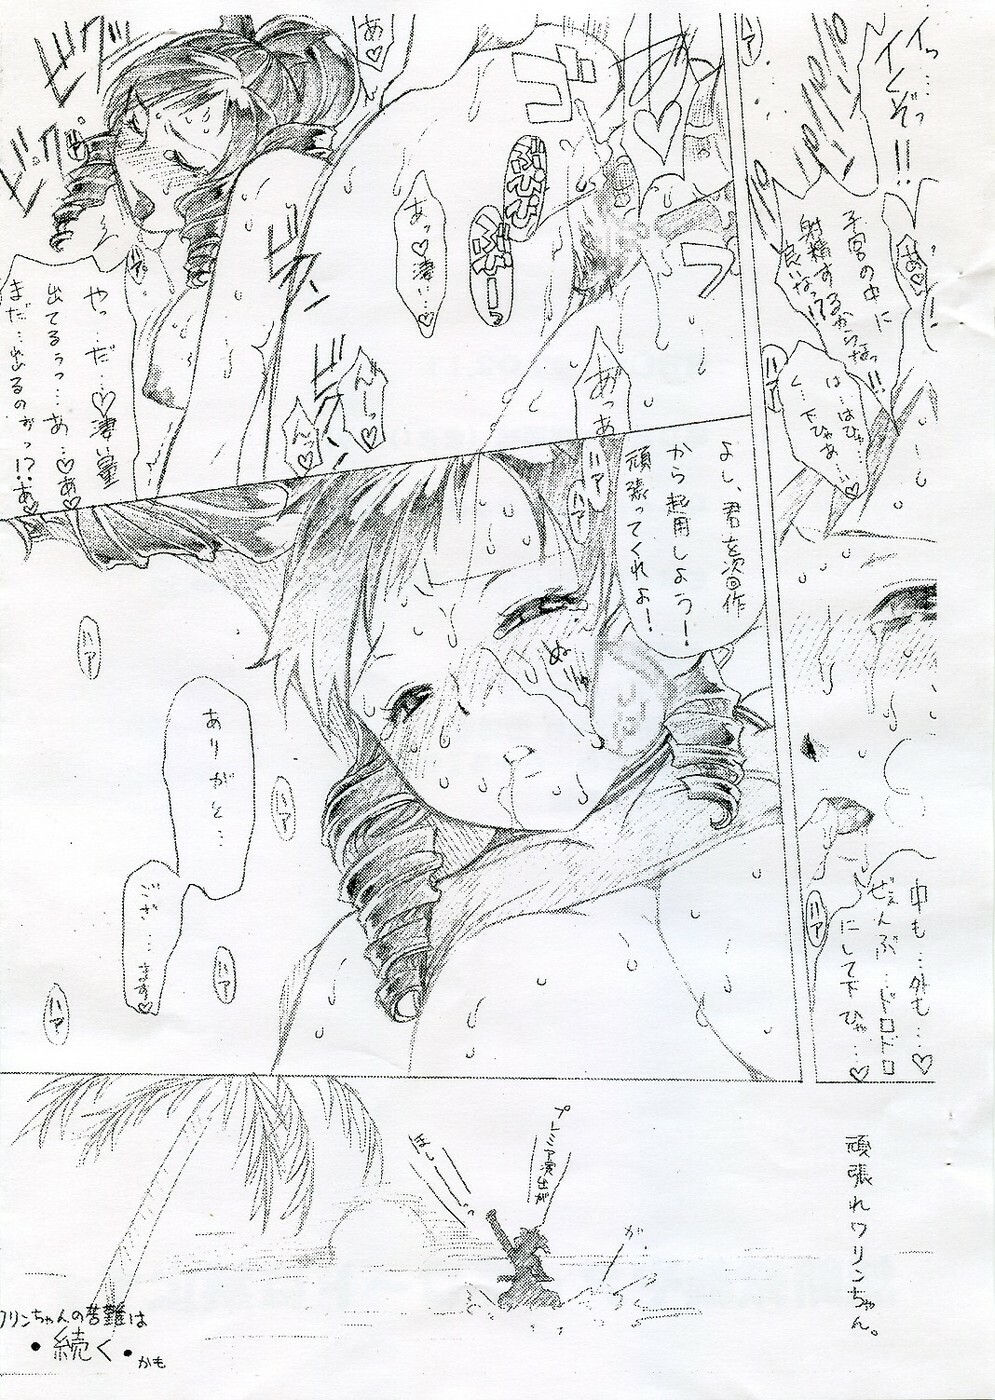 イッ…
イくぞっ!!
子宮の中に
射精するからなっ!!
良いなっ!?
あ♡
は…はひゃ…
く…下ひゃあ…♡
ハア
中も…外も…♡
ぜぇんぶ…ドロドロ
にして下ひゃ…♡
ハア
あ♡
あっ♡凄…♡
あっあ
んーっ♡
んっ♡
やっ…だ…♡凄い量
出てるぅっ…あ…♡あ♡
まだ…出るのがっ!?あ♡
よし、君を次回作
から起用しよう!
頑張ってくれよ!
ハア
ハア
ハア
ありがと…
ござ…ます♡
ハア
ハア
ハア
頑張れワリンちゃん。
プレミア演出が
ほしーっ
が
ワリンちゃんの苦難は
・続く・かも